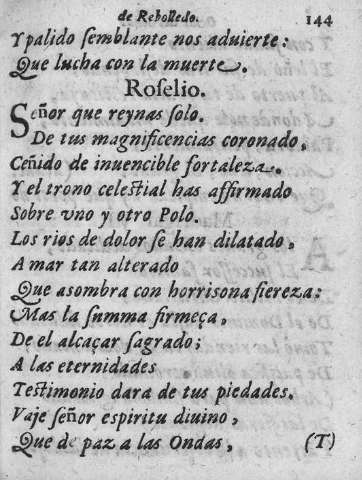 de Rebolledo. 144
Y palido ſemblante nos aduierte:
Que lucha con la muerte.
Roſelio.
Señor que reynas ſolo.
De tus magnificencias coronado,
Ceñido de inuencible fortaleza.
Y el trono celeſtial has affirmado
Sobre vno y otro Polo.
Los rios de dolor ſe han dilatado,
A mar tan alterado
Que asombra con horriſona fiereza:
Mas la ſumma firmeça,
De el alcaçar ſagrado;
A las eternidades
Teſtimonio dara de tus piedades.
Vaje ſeñor eſpiritu diuino,
Que de paz a las Ondas, (T)